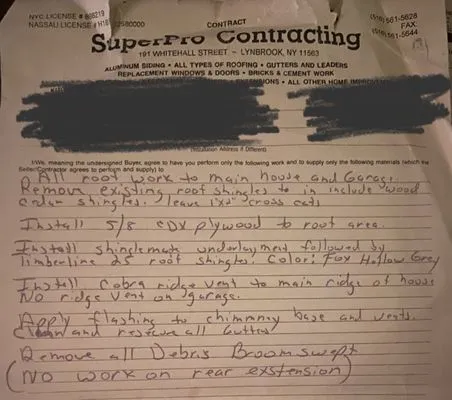 NYC LICENSE # 868219
CONTRACT
NASSAU LICENSE # H18 2580000
(516) 561-5628
FAX
(516) 561-5644
SuperPro Contracting
191 WHITEHALL STREET ~ LYNBROOK, NY 11563
ALUMINUM SIDING • ALL TYPES OF ROOFING • GUTTERS AND LEADERS
REPLACEMENT WINDOWS & DOORS • BRICKS & CEMENT WORK
EXTENSIONS • ALL OTHER HOME IMPROV
(Installation Address if Different)
I/We, meaning the undersigned Buyer, agree to have you perform only the following work and to supply only the following materials (which the
Seller/Contractor agrees to perform and supply) to
All root work to main house and Garage.
Remove existing roof shingles to in include wood
cedar shingles. leave 1"x2" cross cats
Install 5/8 CDX plywood to roof area.
Install shinglemate underlayment followed by
timberline 25 roof shingles. Color: Fox Hollow Grey
Install Cobra ridge vent to main ridge of house
No ridge vent on garage.
Apply flashing to chimmney base and vents.
Clean and all Gutters
Remove all Debris Broomswept
(No work on rear exstension)